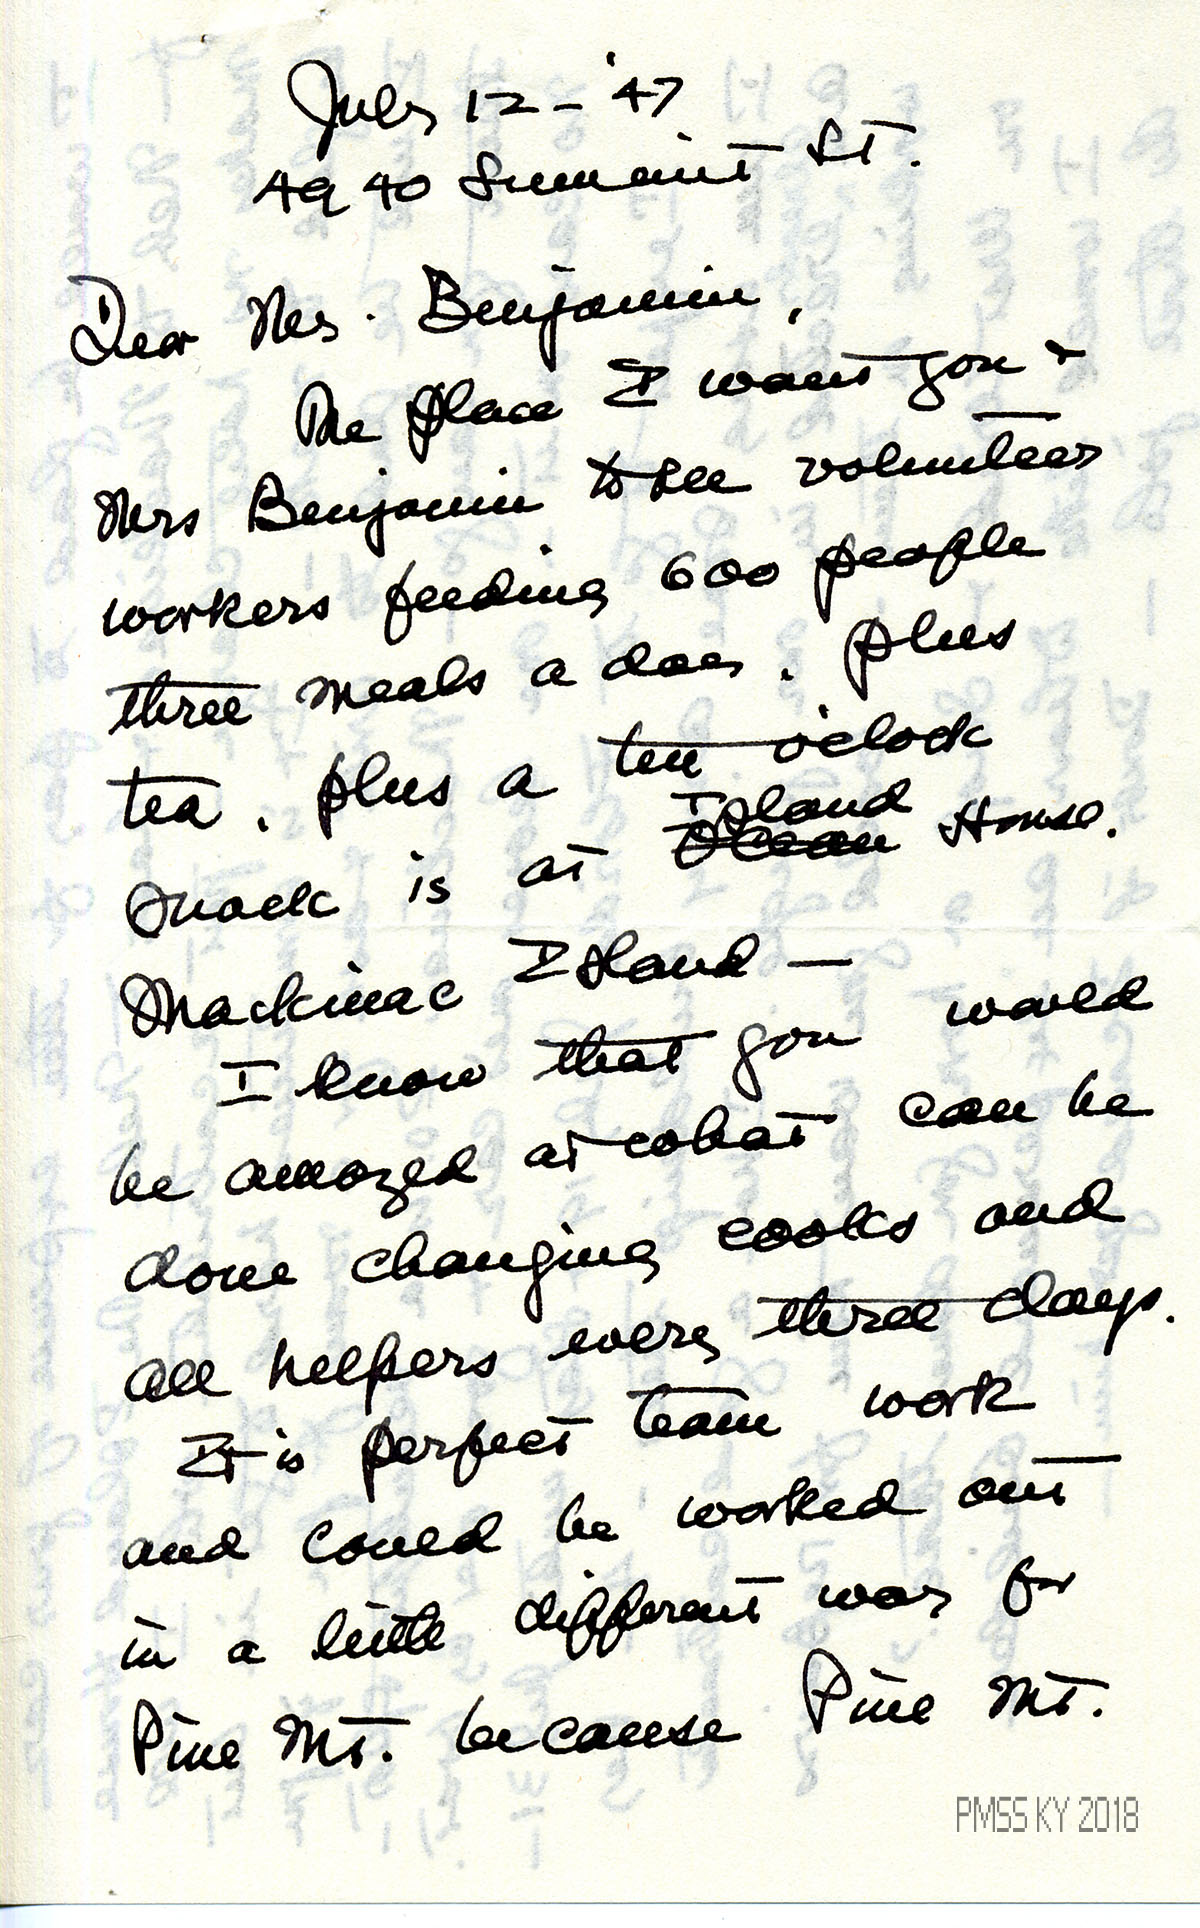 July 12 - '47
4940 Summit St.
Dear Mr. Benjamin,
The place I want you +
Mrs Benjamin to see volunteer
workers feeding 600 people
three meals a day. plus
tea. plus a ten o'clock
Island
snack is at Ocean House.
Mackinac Island —
I know that you would
be amazed at what can be
done changing cooks and
all helpers every three days.
It is perfect team work
and could be worked out
in a little different way for
Pine Mt. because Pine Mt.
PMSS KY 2018